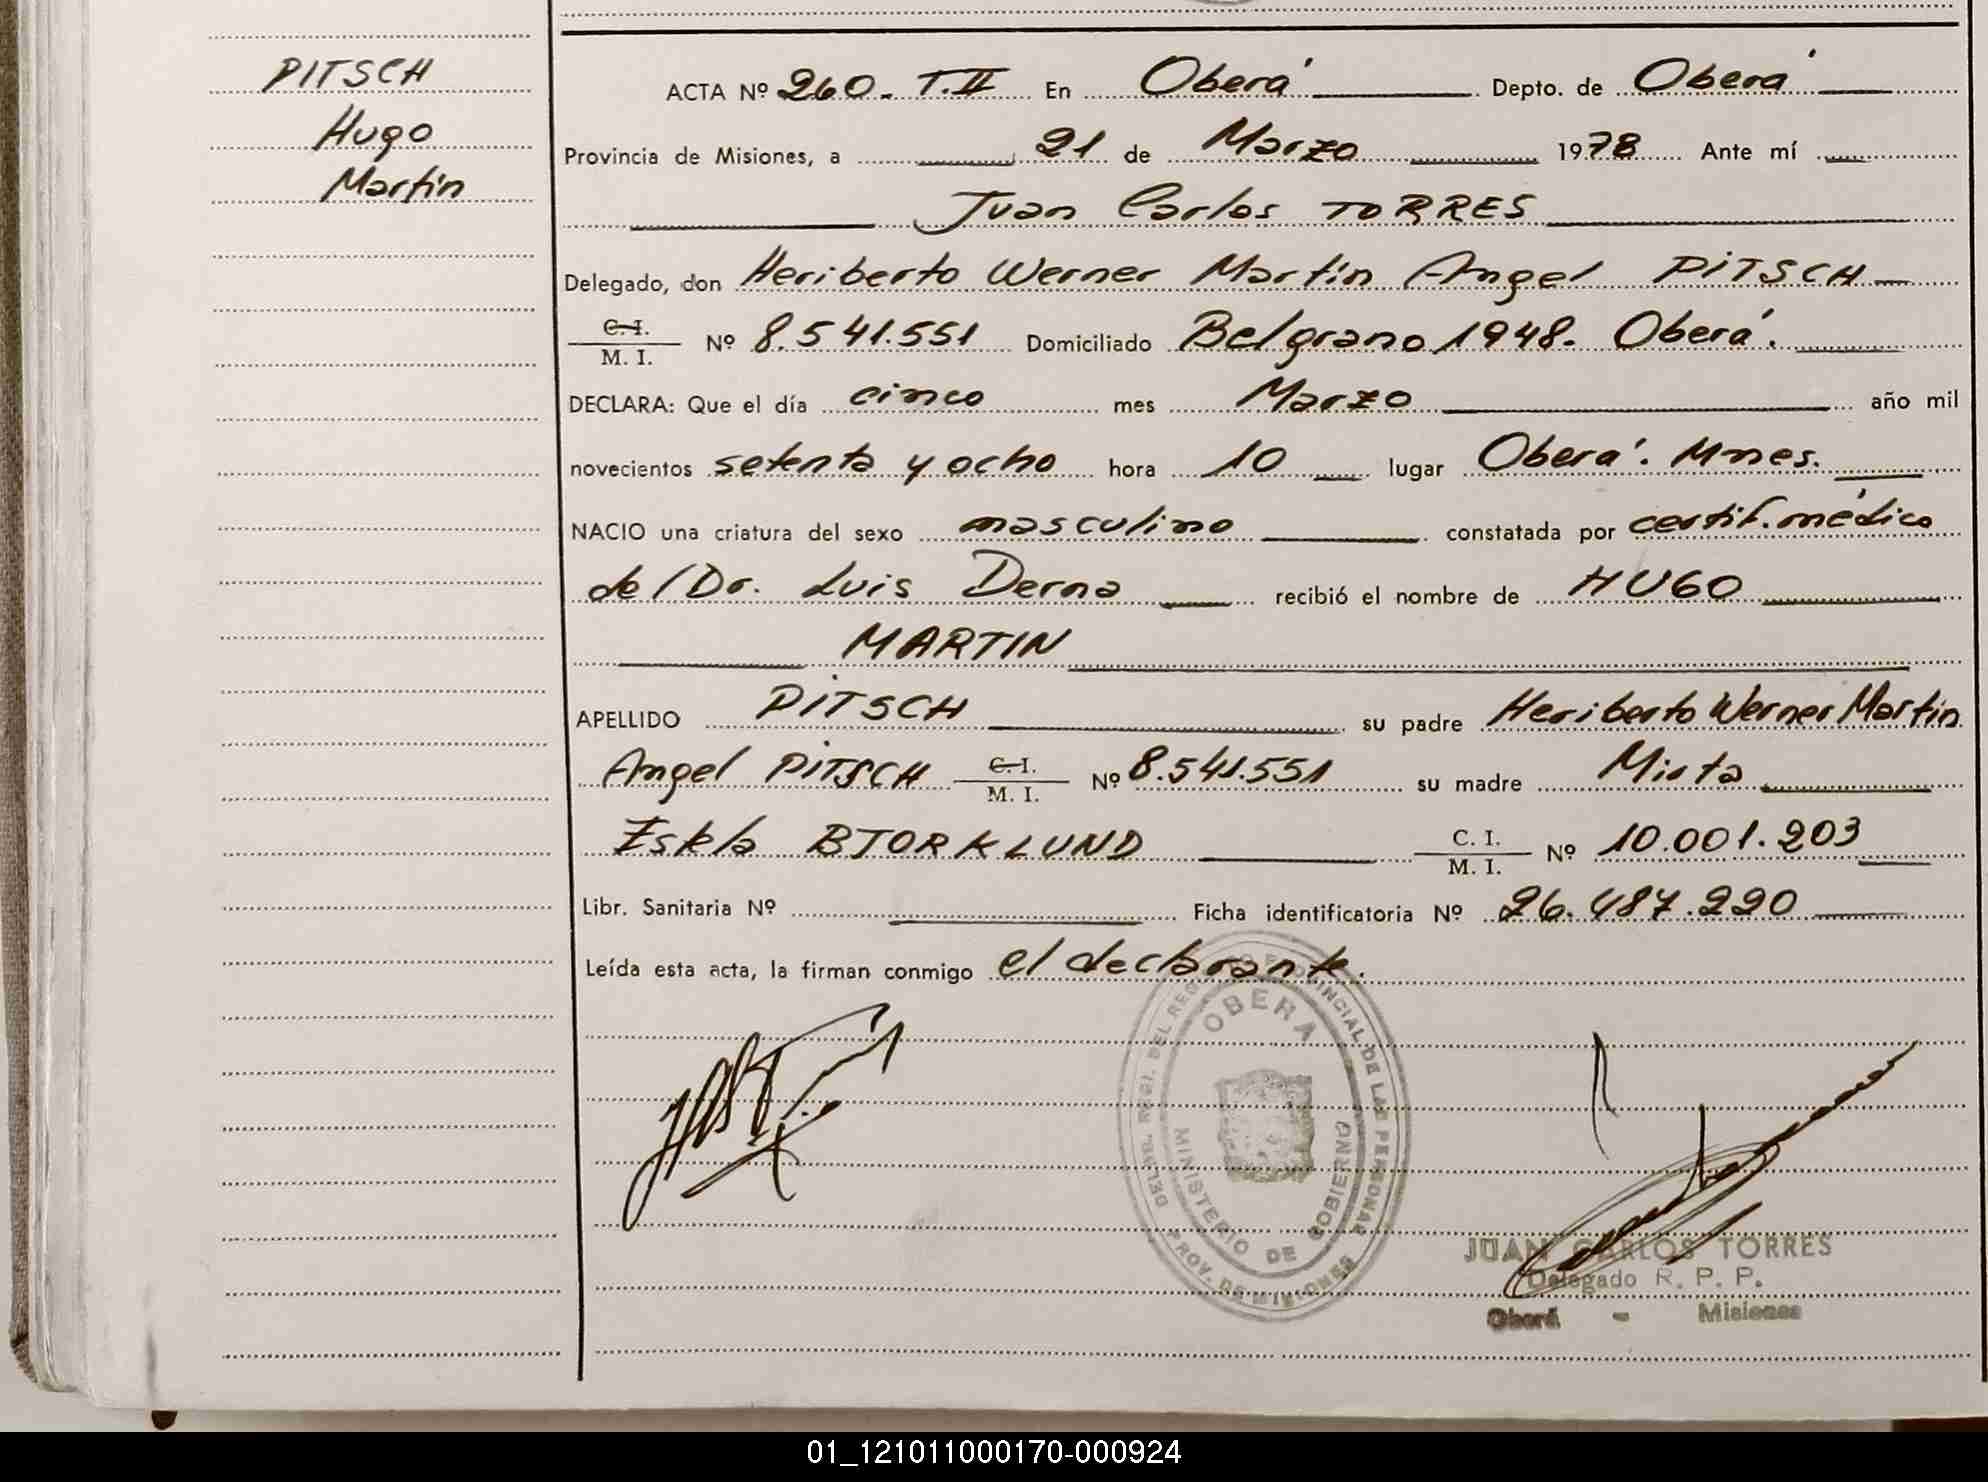 PITSCH
Hugo
Martin
ACTA Nº 260. T.II En Oberá Depto. de Oberá
Provincia de Misiones, a 21 de Marzo 1978 Ante mí
Juan Carlos TORRES
Delegado, don Heriberto Werner Martin Angel PITSCH
C.I. / M. I. Nº 8.541.551 Domiciliado Belgrano 1948. Oberá.
DECLARA: Que el día cinco mes Marzo año mil
novecientos setenta y ocho hora 10 lugar Oberá. Mnes.
NACIO una criatura del sexo masculino constatada por certif. médico
del Dr. Luis Derna recibió el nombre de HUGO
MARTIN
APELLIDO PITSCH su padre Heriberto Werner Martin
Angel PITSCH C.I. / M. I. Nº 8.541.551 su madre Mirta
BJORKLUND C. I. / M. I. Nº 10.001.203
Libr. Sanitaria Nº Ficha identificatoria Nº 26.487.220
Leída esta acta, la firman conmigo el declarante.
OBERA
MINISTERIO DE GOBIERNO
PROV. DE MISIONES
JUAN CARLOS TORRES
Delegado R. P. P.
Oberá - Misiones
01_121011000170-000924